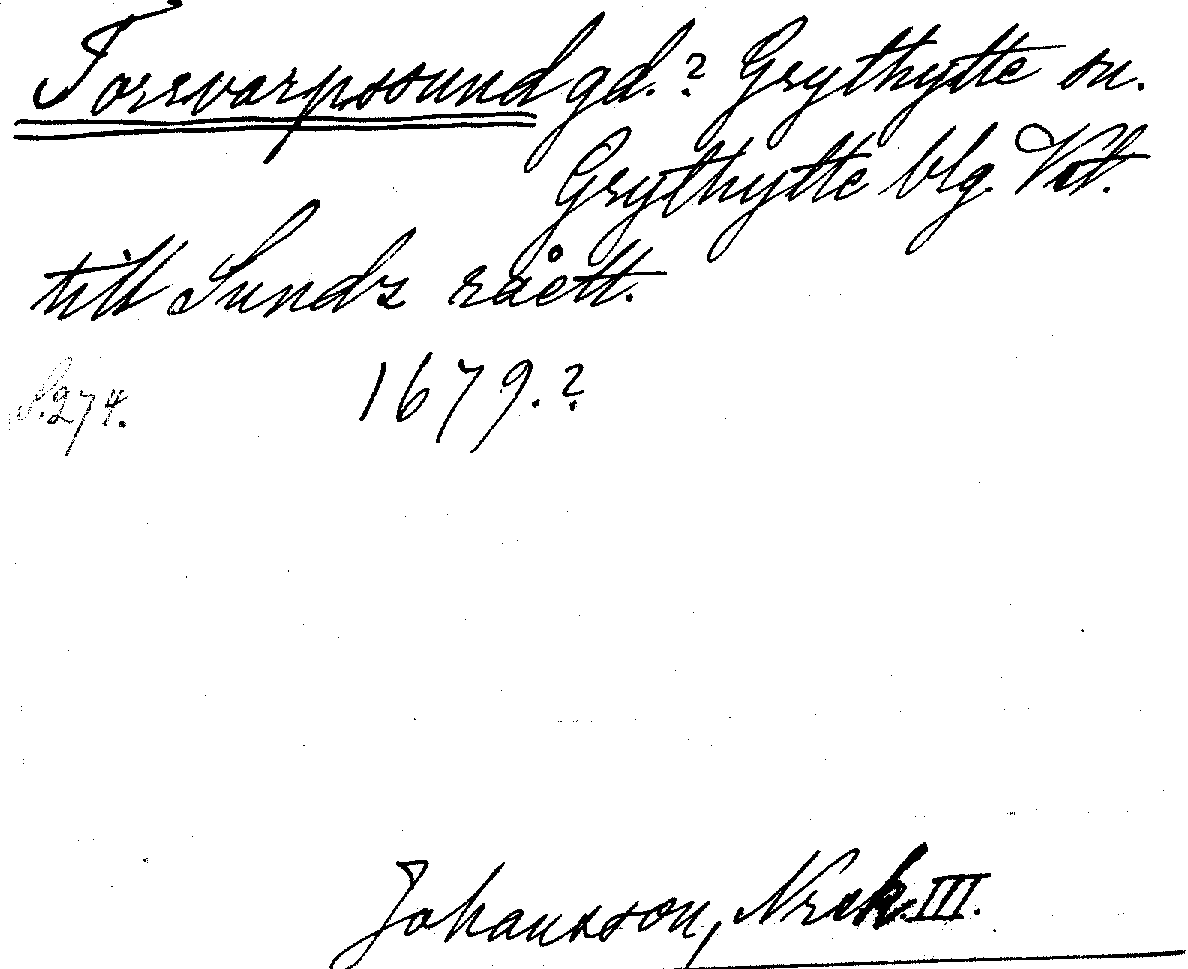 Torrvarpssund gd.? Grythytte sn.
Grythytte blg. Vstm.
till Sundz råett.
S. 274. 1679.?
Johansson, Nrck. III.